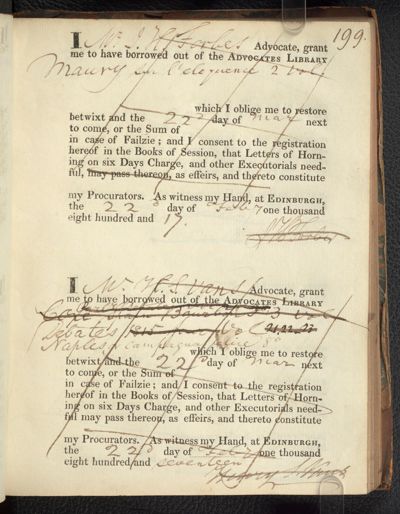 199.
I Mr J H Forbes Advocate, grant
me to have borrowed out of the ADVOCATES LIBRARY
Maury sur l'eloquence 2 vol.
which I oblige me to restore
betwixt and the 22d day of May next
to come, or the Sum of
in case of Failzie; and I consent to the registration
hereof in the Books of Session, that Letters of Horn-
ing on six Days Charge, and other Executorials need-
ful, may pass thereon, as effeirs, and thereto constitute
my Procurators. As witness my Hand, at EDINBURGH,
the 22d day of Feby one thousand
eight hundred and 17.
J H Forbes
I Mr H. Advocate, grant
me to have borrowed out of the ADVOCATES LIBRARY
3 vol
Debates 1815 21, 22, 23
Naples
which I oblige me to restore
betwixt and the 22d day of May next
to come, or the Sum of
in case of Failzie; and I consent to the registration
hereof in the Books of Session, that Letters of Horn-
ing on six Days Charge, and other Executorials need-
ful may pass thereon, as effeirs, and thereto constitute
my Procurators. As witness my Hand, at EDINBURGH,
the 22d day of Feby one thousand
eight hundred and seventeen